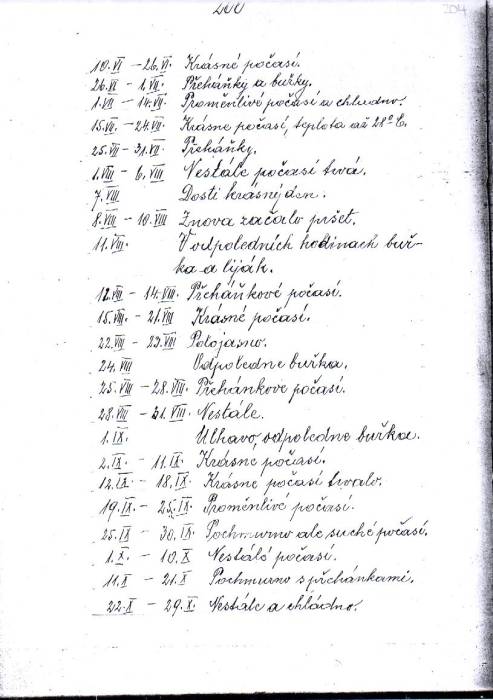 200
204
10.VI - 26.VI. Krásné počasí.
26.VI. - 1.VII. Přeháňky a buřky.
1.VII - 14.VII. Proměnlivé počasí a chladno.
15.VII. - 24.VII. Krásne počasí, teplota až 28° C.
25.VII - 31.VII. Přeháňky.
1.VIII - 6.VIII Nestálé počasí trvá.
7.VIII Dosti krásný den.
8.VIII - 10.VIII Znova začalo pršet.
11.VIII. V odpoledních hodinach buř-
ka a liják.
12.VIII - 14.VIII. Přeháňkové počasí.
15.VIII. - 21.VIII Krásné počasí.
22.VIII - 23.VIII Polojasno.
24.VIII Odpoledne buřka.
25.VIII - 28.VIII. Přehánkove počasí.
28.VIII - 31.VIII. Nestále.
1.IX. Ulhavo, odpoledne buřka.
2.IX - 11.IX Krásné počasí.
12.IX - 18.IX Krásne počasí trvalo.
19.IX - 25.IX Proměnlivé počasí.
25.IX - 30.IX Pochmurno ale suché počasí.
1.X. - 10.X Nestálé počasí.
11.X - 21.X Pochmurno s přehánkami.
22.X - 29.X. Nestále a chládno.